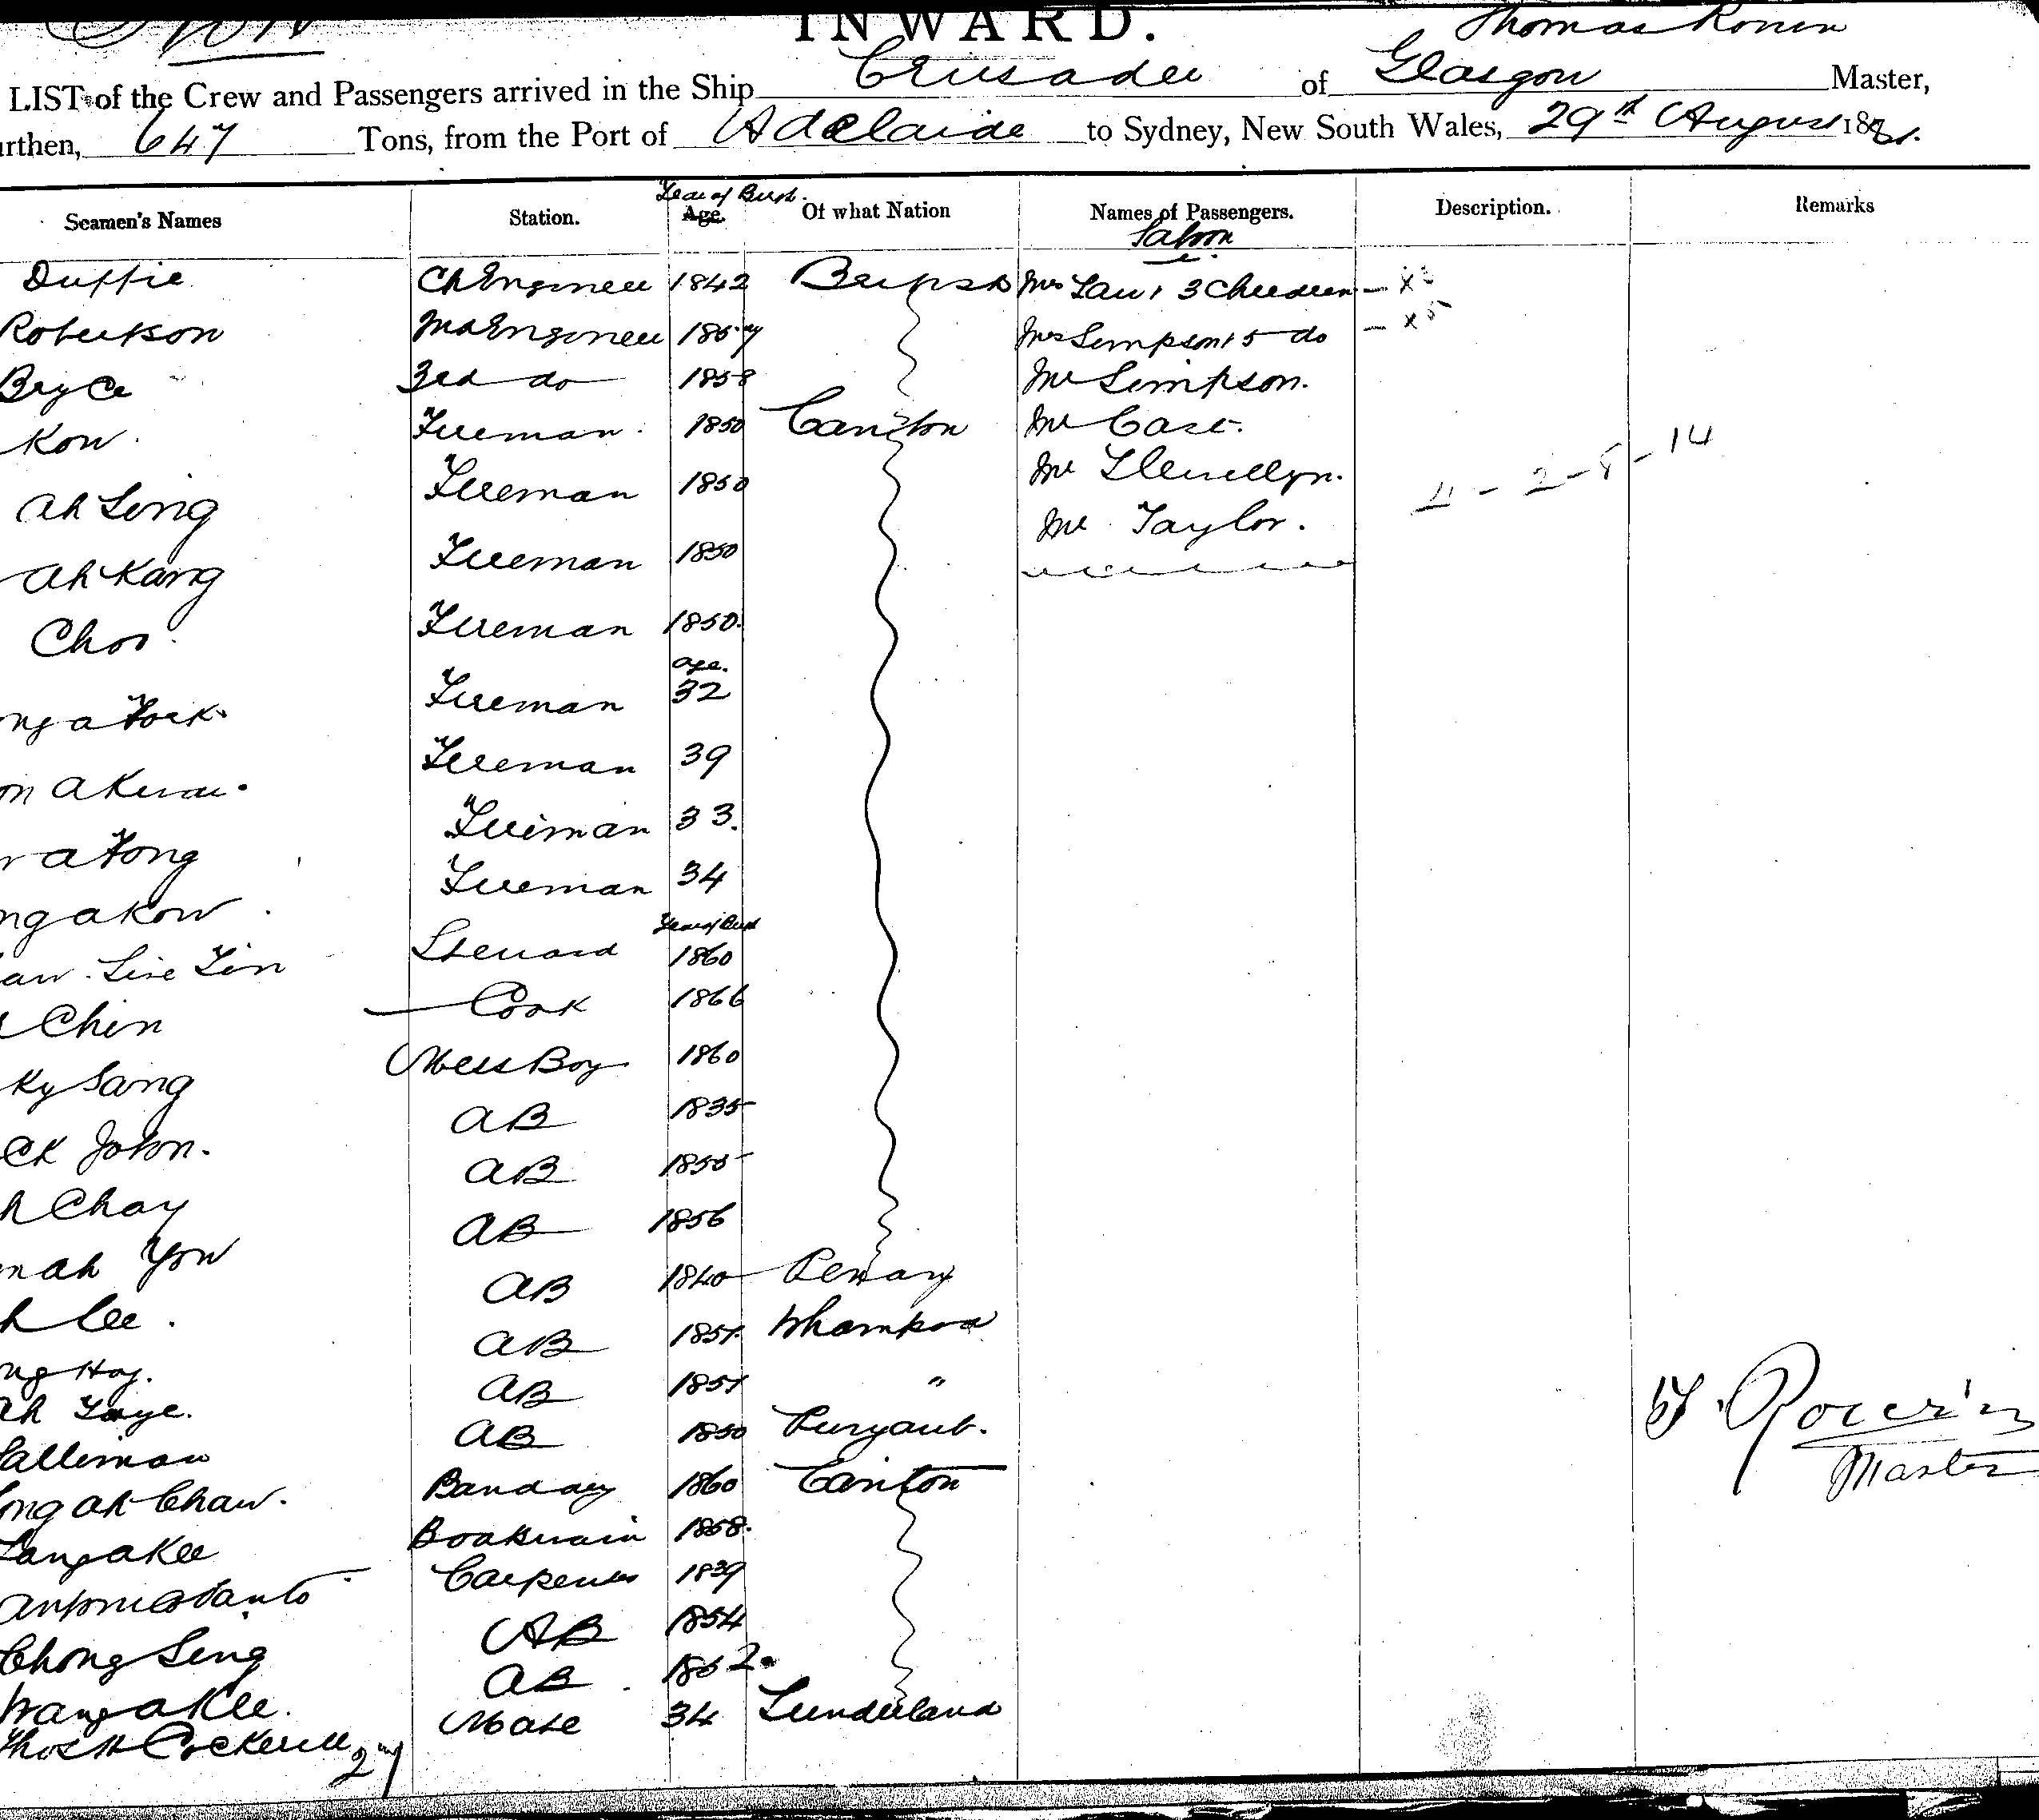 INWARD.
Thomas Ronin
LIST of the Crew and Passengers arrived in the Ship Crusader of Glasgow Master,
urthen, 647 Tons, from the Port of Adelaide to Sydney, New South Wales, 29th August 1881.
Seamen's Names Station. Year of Birth. Age. Of what Nation Names of Passengers. Description. Remarks
Saloon
Duffie Ch Engineer 1842 Mrs Law & 3 Children - x3
Robertson 2nd Engineer 1857 Mrs Simpson & 5 do - x5
Bryce 3rd do 1858 Mr Simpson.
Kow. Fireman. 1850 Canton Mr Case.
Ah Sing Fireman 1850 Mr Llewellyn. 4-2-8-14
Ah Kang Fireman 1850 Mr Taylor.
Choo. Fireman 1850.
age.
ng a Fock. Fireman 32
on a Fireman 39
a Fong Fireman 33.
ng a Kow. Fireman 34
Year of Birth
aw. Steward 1860
Chin Cook 1866
Ky Sang Mess Boy 1860
ck John. AB 1835
h Chay AB 1855
nah Yow AB 1856
h Lee. AB 1840 Penang
ng Hoy. AB 1851. Whampoa
Ah AB 1851 "
Salliman AB 1850
ong Ah Chaw. 1860 Canton
Tang a Kee Boatswain 1858.
Antonio Santo Carpenter 1839
Chong Seng AB 1854
Wang a Kee. AB. 1862.
Thos H Cockerell 2nd Mate 34 Sunderland
T. Ronin
Master